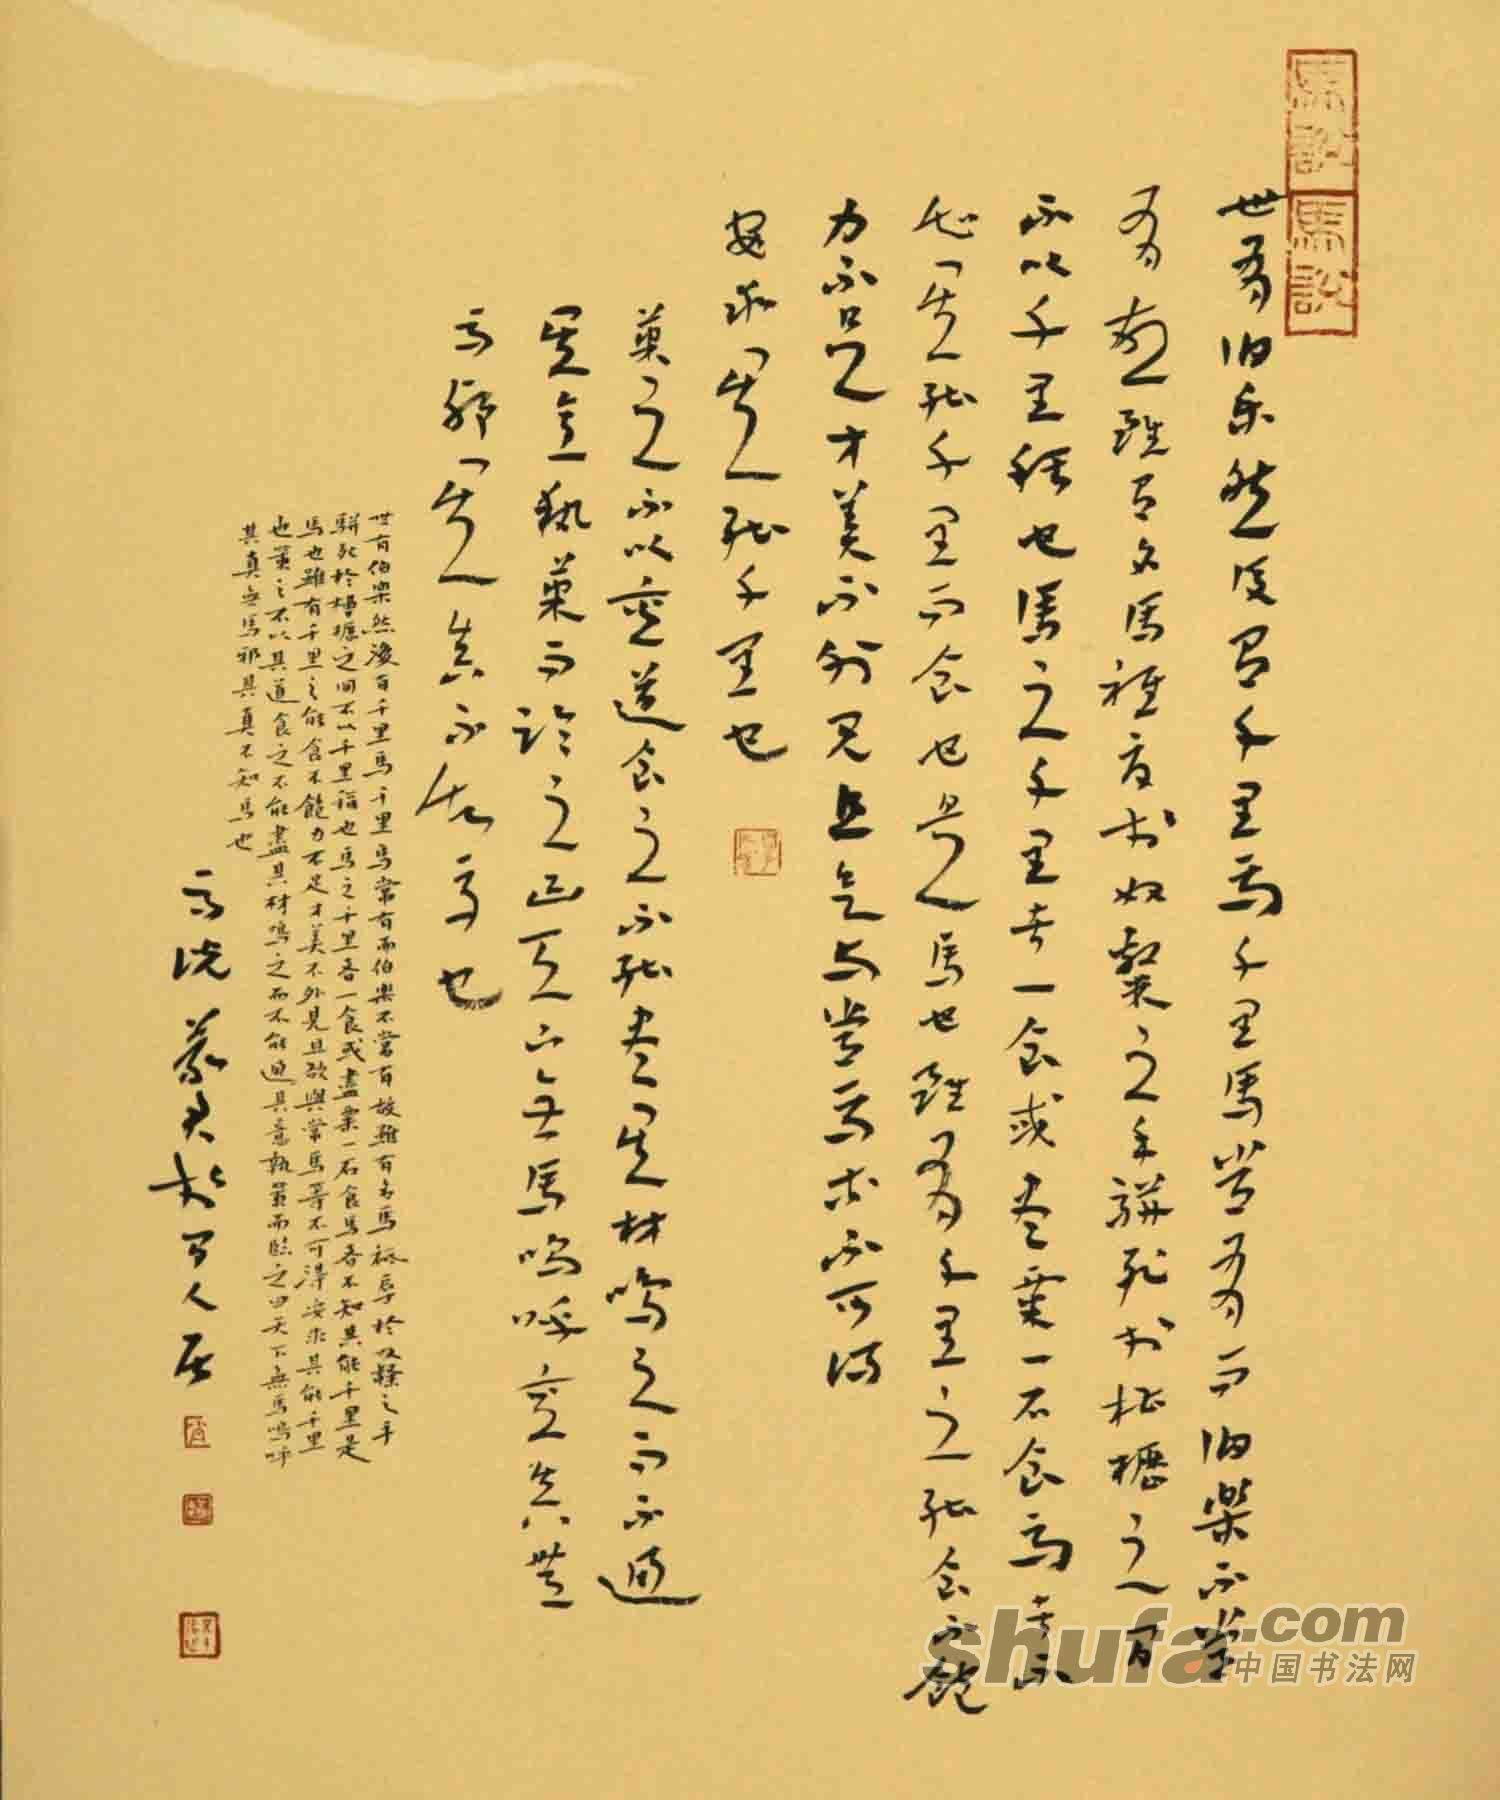 馬說
馬說
世有伯樂然後有千里馬千里馬常有而伯樂不常
有故雖有名馬祗辱於奴隸之手駢死於槽櫪之間
不以千里稱也馬之千里者一食或盡粟一石食馬者不
知其能千里而食也是馬也雖有千里之能食不飽
力不足才美不外見且欲與常馬等不可得
安求其能千里也
策之不以其道食之不能盡其材鳴之而不通
其意執策而臨之曰天下無馬嗚呼其真無
馬邪其真不知馬也
世有伯樂然後有千里馬千里馬常有而伯樂不常有故雖有名馬祗辱於奴隸之手
駢死於槽櫪之間不以千里稱也馬之千里者一食或盡粟一石食馬者不知其能千里是
馬也雖有千里之能食不飽力不足才美不外見且欲與常馬等不可得安求其能千里
也策之不以其道食之不能盡其材鳴之而不能通其意執策而臨之曰天下無馬嗚呼
其真無馬邪其真不知馬也
shufa.com
中国书法网